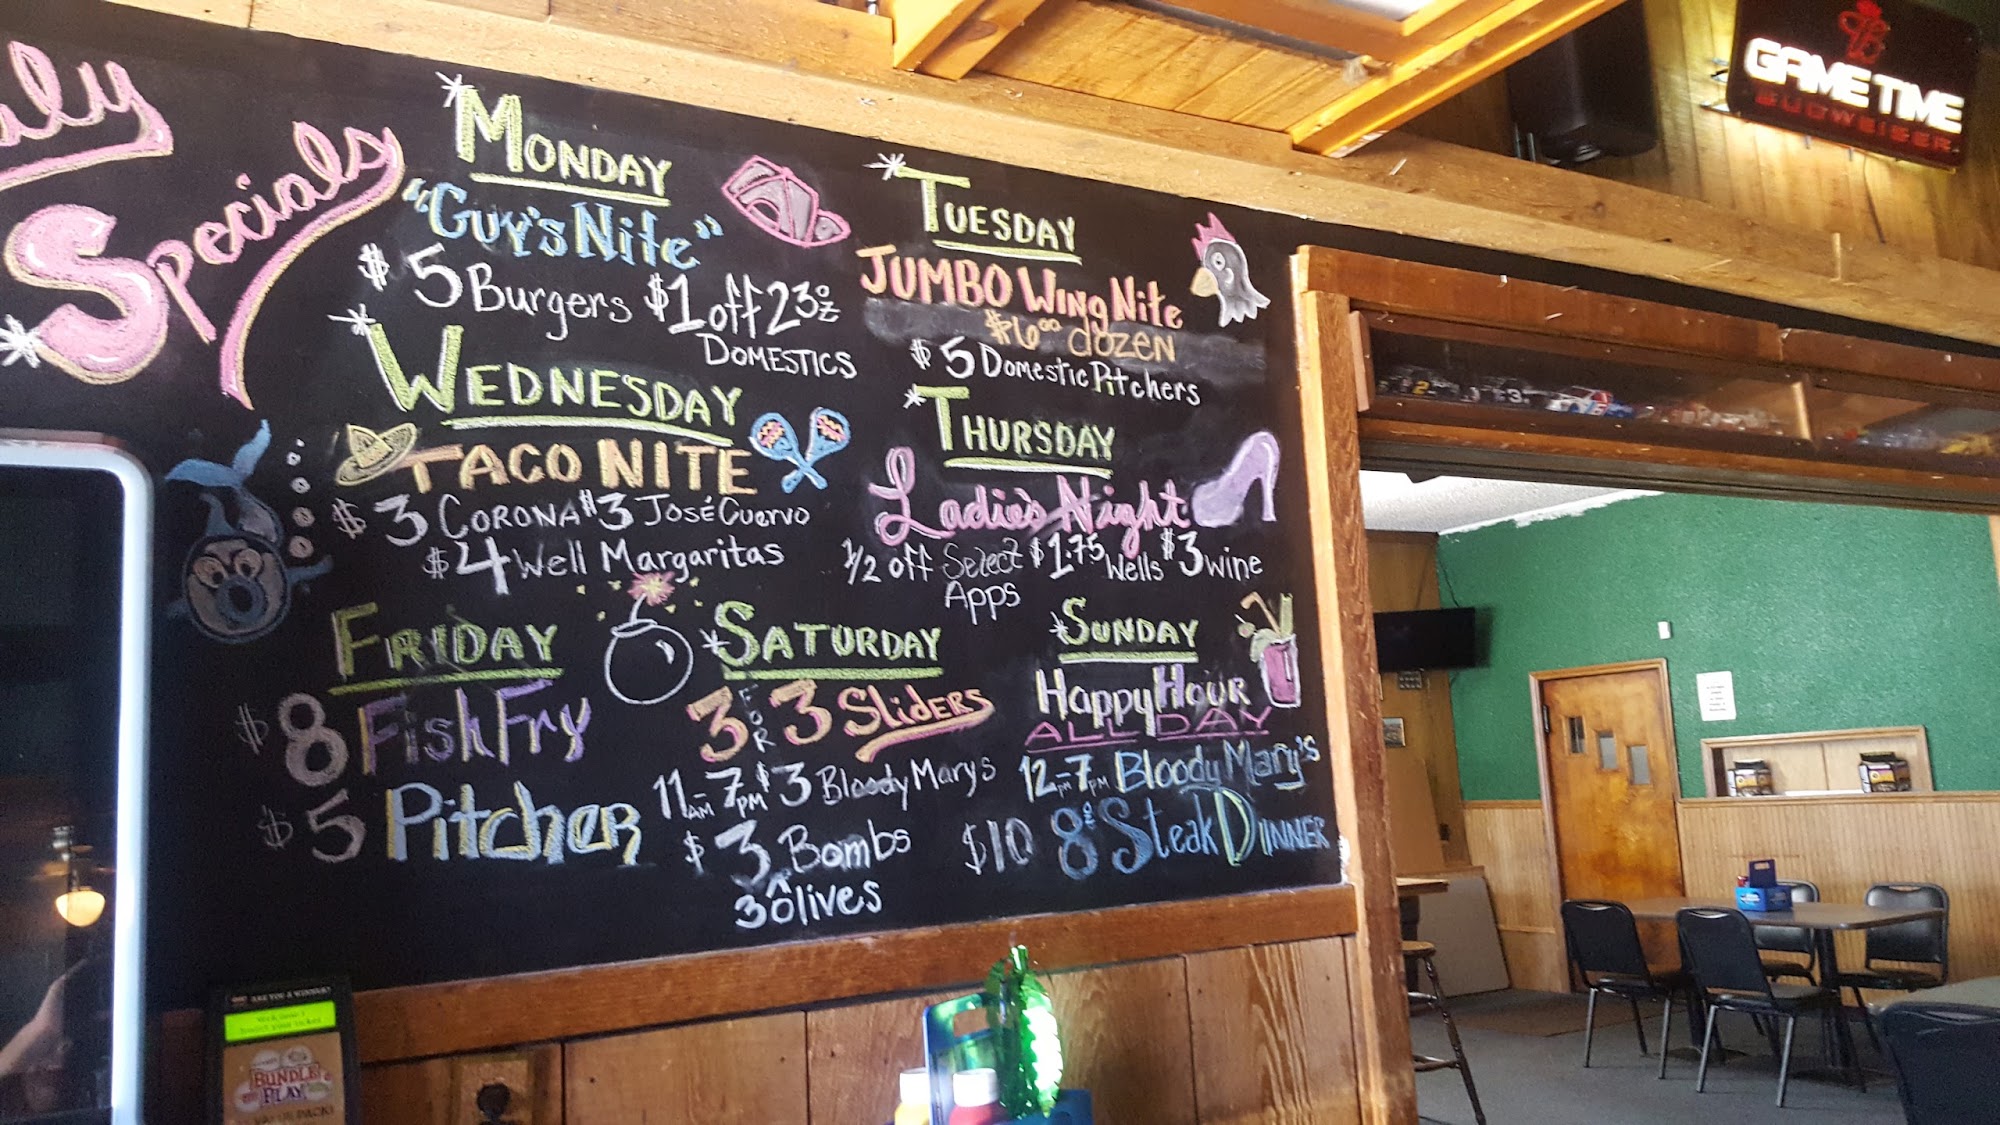 Specials
MONDAY
"GUY'S Nite"
$5 Burgers $1 off 23oz
DOMESTICS
TUESDAY
JUMBO WingNite
$6.00 dozen
$5 Domestic Pitchers
WEDNESDAY
TACO NITE
$3 CORONA $3 José Cuervo
$4 Well Margaritas
THURSDAY
Ladie's Night
1/2 off Select Apps $1.75 Wells $3 wine
FRIDAY
$8 Fish Fry
$5 Pitcher
SATURDAY
3 FOR 3 SLiDERS
11AM-7PM $3 Bloody Marys
$3 Bombs
3 Olives
SUNDAY
HappyHOUR
ALL DAY
12PM-7PM Bloody Mary's
$10 8oz Steak DINNER
GAME TIME
BUDWEISER
2
3
ARE YOU A WINNER?
BUNDLE
PLAY